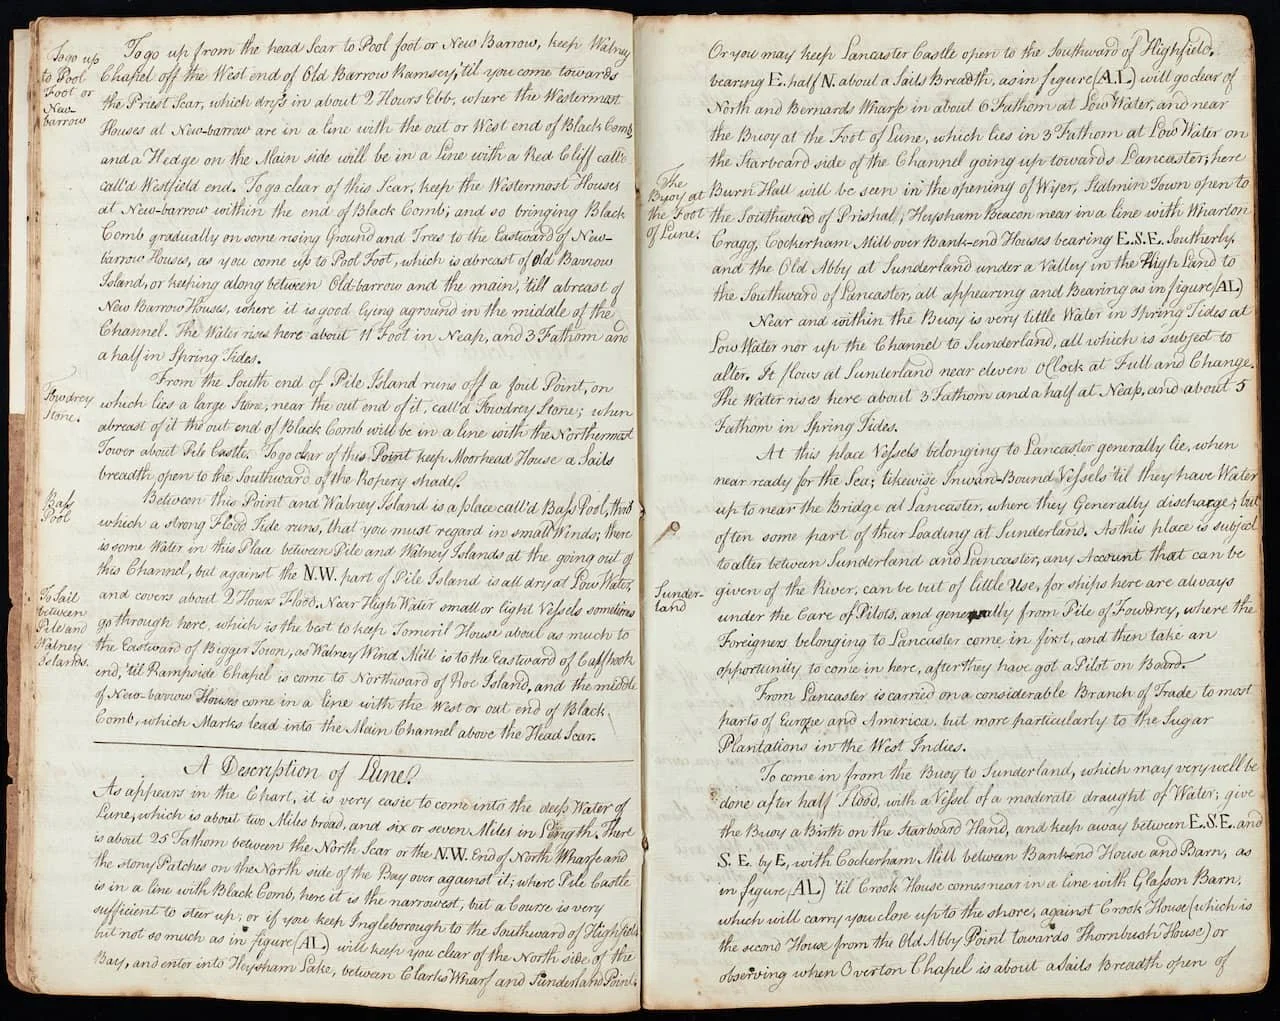 To go up
to Pool
Foot or
New-
barrow
To go up from the head Scar to Pool foot or New Barrow, keep Walney
Chapel off the West end of Old Barrow Ramsey, 'til you come towards
the Priest Scar, which dry's in about 2 Hours Ebb, where the Westermost
Houses at New-barrow are in a line with the out or West end of Black Comb
and a Hedge on the Main side will be in a Line with a Red Cliff call'd
call'd Westfield end. To go clear of this Scar, keep the Westermost Houses
at New-barrow within the end of Black Comb; and so bringing Black
Comb gradually on some rising Ground and Trees to the Eastward of New-
barrow Houses, as you come up to Pool Foot, which is abreast of old Barrow
Island, or keeping along between Old-barrow and the main, 'till abreast of
New Barrow Houses, where it is good lying aground in the middle of the
Channel. The Water rises here about 11 Foot in Neap, and 3 Fathom and
a half in Spring Tides.
Fowdrey
Stone.
From the South end of Pile Island runs off a foul Point, on
which lies a large Stone, near the out end of it, call'd Fowdrey Stone; when
abreast of it the out end of Black Comb will be in a line with the Northermost
Tower about Pile Castle. To go clear of this Point keep Moorhead House a Sails
breadth open to the Southward of the Ropery shade.
Bass
Pool
Between this Point and Walney Island is a place call'd Bass Pool, thro'
which a strong Flood Tide runs, that you must regard in small Winds; there
is some Water in this Place between Pile and Walney Islands at the going out of
this Channel, but against the N.W. part of Pile Island is all dry at Low Water,
To Sail
between
Pile and
Walney
Islands.
and covers about 2 Hours Flood. Near High Water small or light Vessels sometimes
go through here, which is the best to keep Tomeril House about as much to
the Eastward of Bigger Town, as Walney Wind Mill is to the Eastward of
end, 'til Rampside Chapel is come to Northward of Roe Island, and the middle
of New-barrow Houses come in a line with the West or out end of Black
Comb, which Marks lead into the Main Channel above the Head Scar.
A Description of Lune.
As appears in the Chart, it is very easie to come into the deep Water of
Lune, which is about two Miles broad, and six or seven Miles in Length. There
is about 25 Fathom between the North Scar or the N.W. End of North Wharfe and
the stony Patches on the North side of the Bay over against it; where Pile Castle
is in a line with Black Comb, here it is the narrowest, but a Course is very
sufficient to steer up; or if you keep Ingleborough to the Southward of Highfield
but not so much as in figure (AL) will keep you clear of the North side of the
Bay, and enter into Heysham Lake, between Clarks Wharf and Sunderland Point.
Or you may keep Lancaster Castle open to the Southward of Highfield,
bearing E. half N. about a Sails Breadth, as in figure (A.L) will go clear of
North and Bernards Wharfe in about 6 Fathom at Low Water, and near
the Buoy at the Foot of Lune, which lies in 3 Fathom at Low Water on
the Starboard side of the Channel going up towards Lancaster; here
The
Buoy at
the Foot
of Lune.
Burn Hall will be seen in the opening of Wyer, Stalmin Town open to
the Southward of Prishal, Heysham Beacon near in a line with Wharton
Cragg, Cockerham Mill over Bank-end Houses bearing E.S.E. Southerly,
and the Old Abby at Sunderland under a Valley in the High Land to
the Southward of Lancaster, all appearing and Bearing as in figure (AL)
Near and within the Buoy is very little Water in Spring Tides at
Low Water nor up the Channel to Sunderland, all which is subject to
alter. It flows at Sunderland near eleven o'Clock at Full and Change.
The Water rises here about 3 Fathom and a half at Neap, and about 5
Fathom in Spring Tides.
At this place Vessels belonging to Lancaster generally lie, when
near ready for the Sea; likewise Inward-Bound Vessels 'til they have Water
up to near the Bridge at Lancaster, where they Generally discharge; but
often some part of their Loading at Sunderland. As this place is subject
to alter between Sunderland and Lancaster, any Account that can be
Sunder-
land
given of the River, can be but of little Use, for ships here are always
under the Care of Pilots, and generally from Pile of Fowdrey, where the
Foreigners belonging to Lancaster come in first, and then take an
opportunity to come in here, after they have got a Pilot on Board.
From Lancaster is carried on a considerable Branch of Trade to most
parts of Europe and America, but more particularly to the Sugar
Plantations in the West Indies.
To come in from the Buoy to Sunderland, which may very well be
done after half Flood, with a Vessel of a moderate draught of Water; give
the Buoy a Birth on the Starboard Hand, and keep away between E.S.E. and
S.E. by E, with Cockerham Mill between Bankend House and Barn, as
in figure (AL) 'til Crook House comes near in a line with Glasson Barn,
which will carry you close up to the shore, against Crook House (which is
the second House from the Old Abby Point towards Thornbush House) or
observing when Overton Chapel is about a Sails Breadth open of